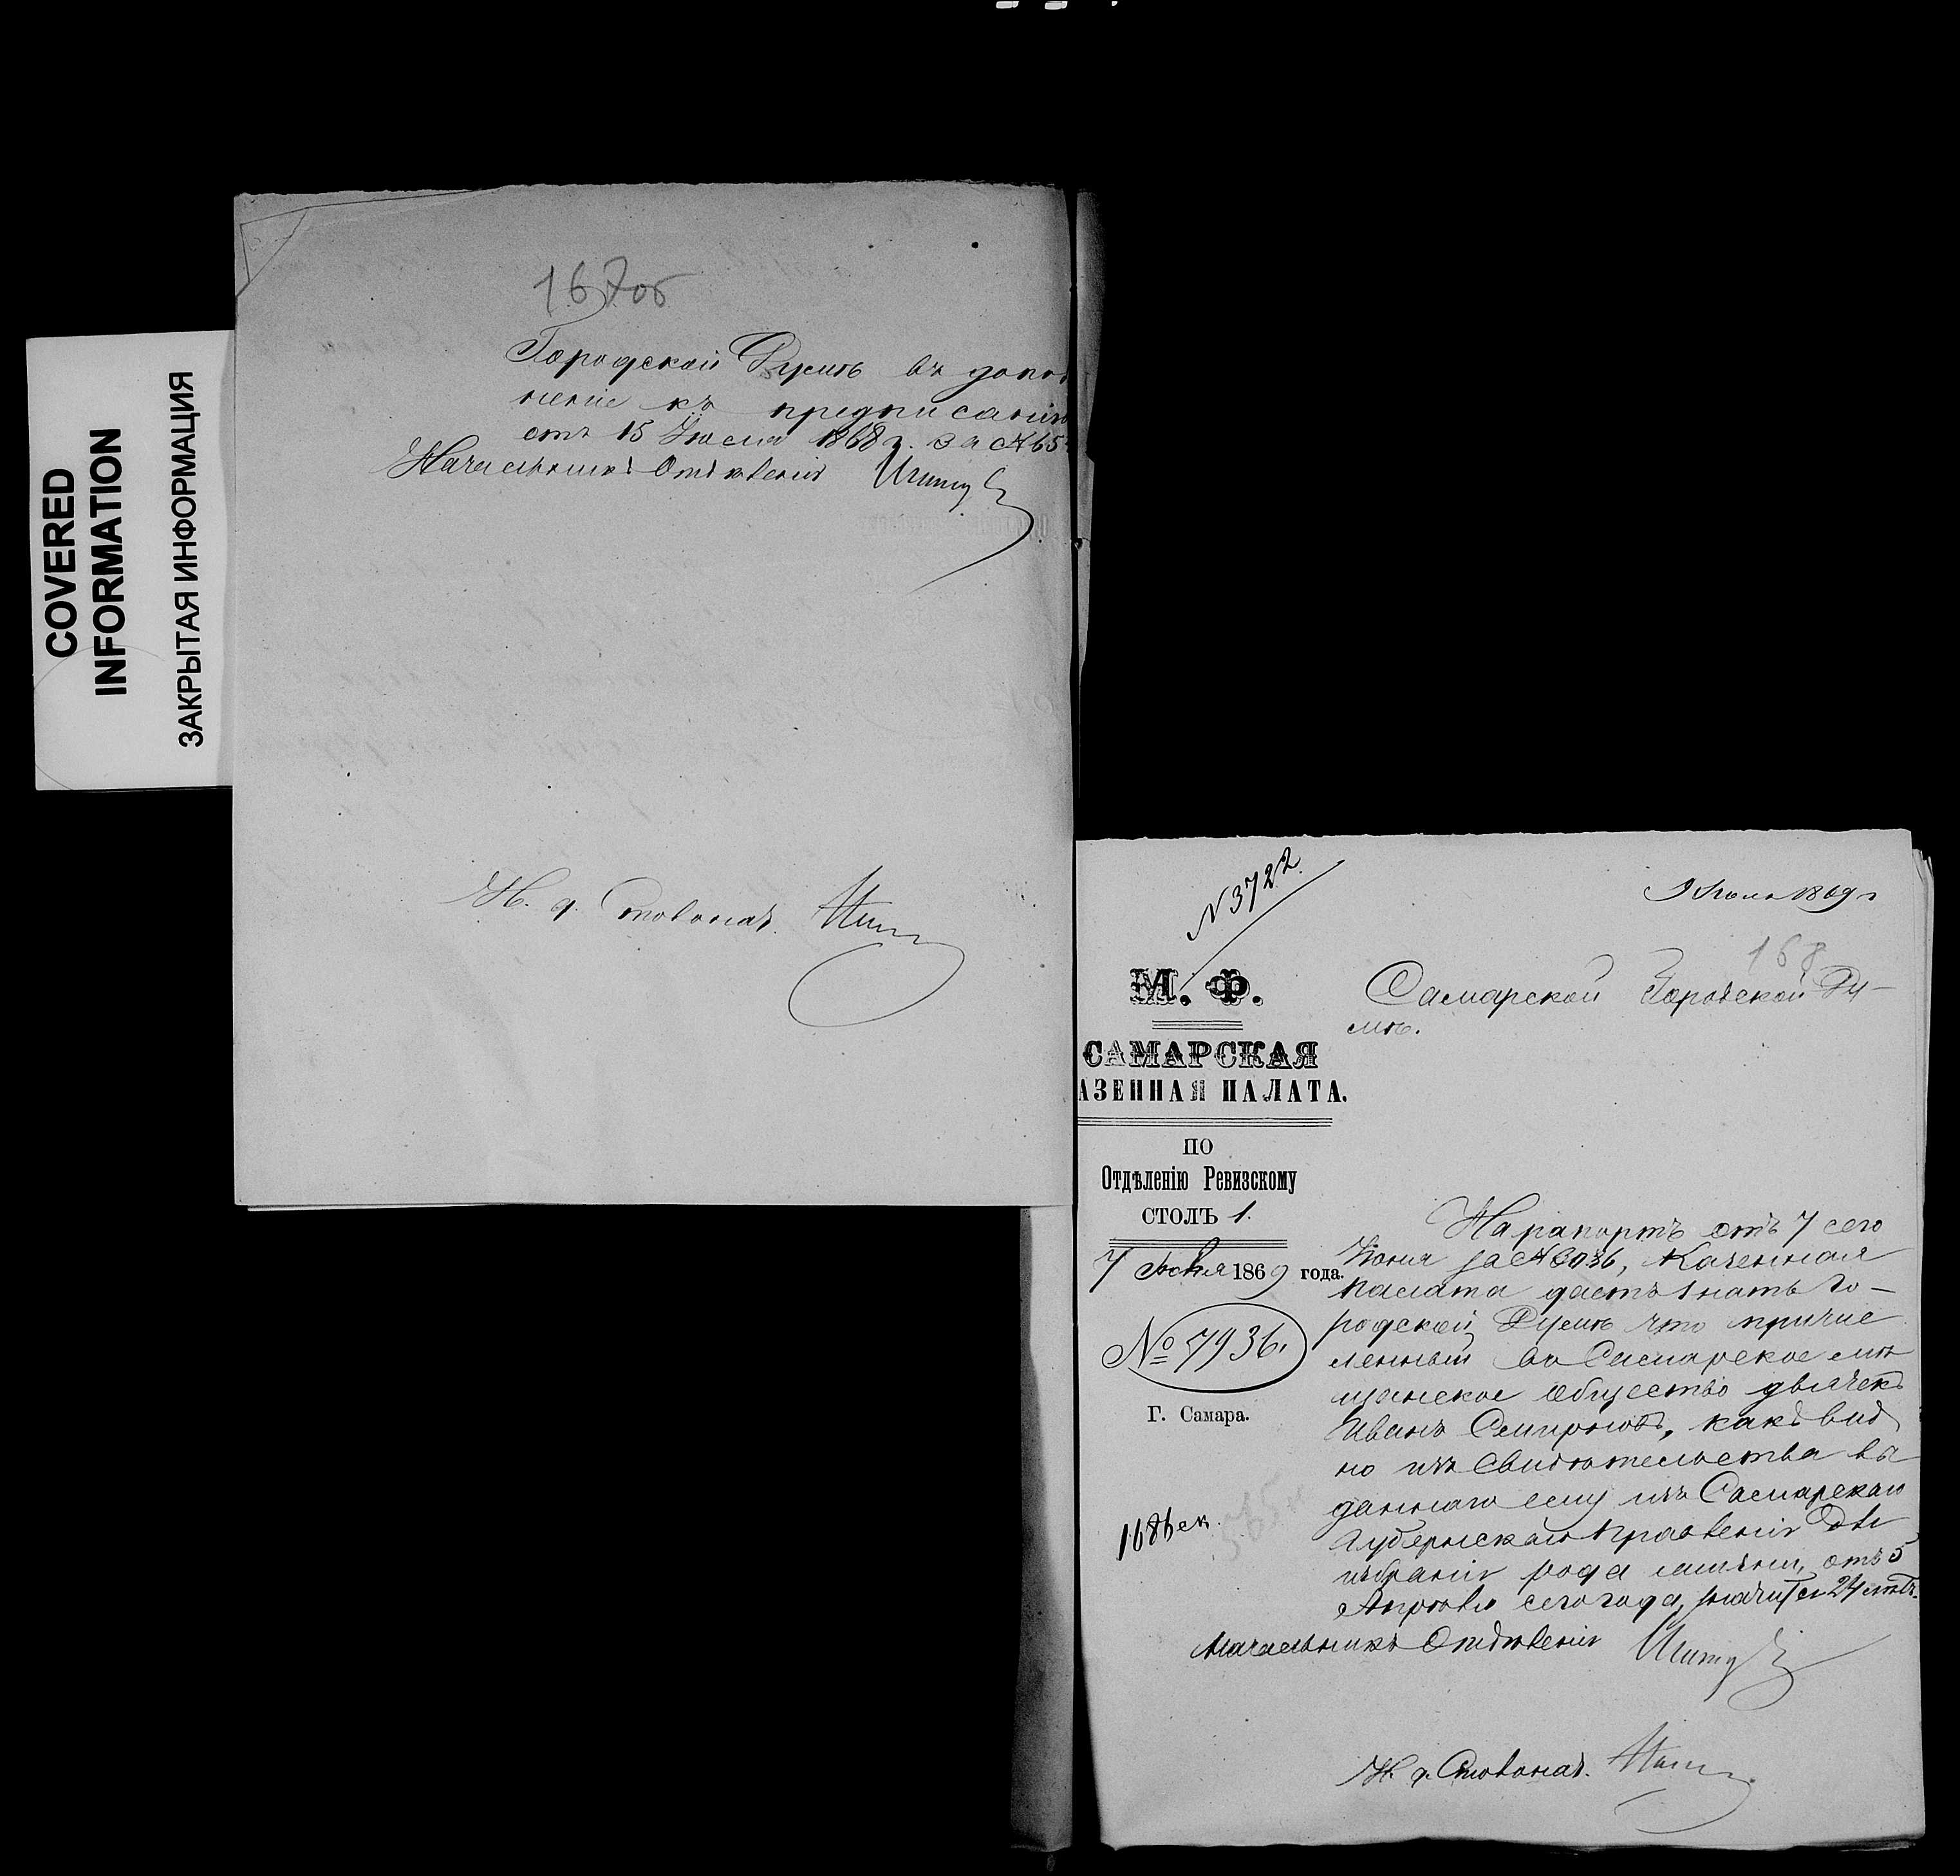 COVERED
INFORMATION
ЗАКРЫТАЯ ИНФОРМАЦИЯ
167об
Городской Думѣ въ допол
неніе къ предписанію
отъ 15 Іюля 1868 г. за №65
Начальникъ Отдѣленія
И. д. Столонач.
N 3722
9 1869 г
168
М. Ф.
САМАРСКАЯ
АЗЕННАЯ ПАЛАТА.
ПО
Отдѣленію Ревизскому
СТОЛЪ 1.
7 1869 года.
№ 7936.
Г. Самара.
Самарской Городской Ду-
мѣ.
На рапортъ отъ 7 сего
Іюня за № 3036, Казенная
Палата даетъ знать Го-
родской Думѣ что причис
ленный въ Самарское мѣ
щанское общество дьячекъ
Иванъ Смирновъ, какъ вид
но изъ Свидѣтельства вы
даннаго ему изъ Самарскаго
Губернскаго Правленія для
избранія рода жизни, отъ 5
Апрѣля сего года, значится 24 лѣтъ.
Начальникъ Отдѣленія
И. д. Столонач.